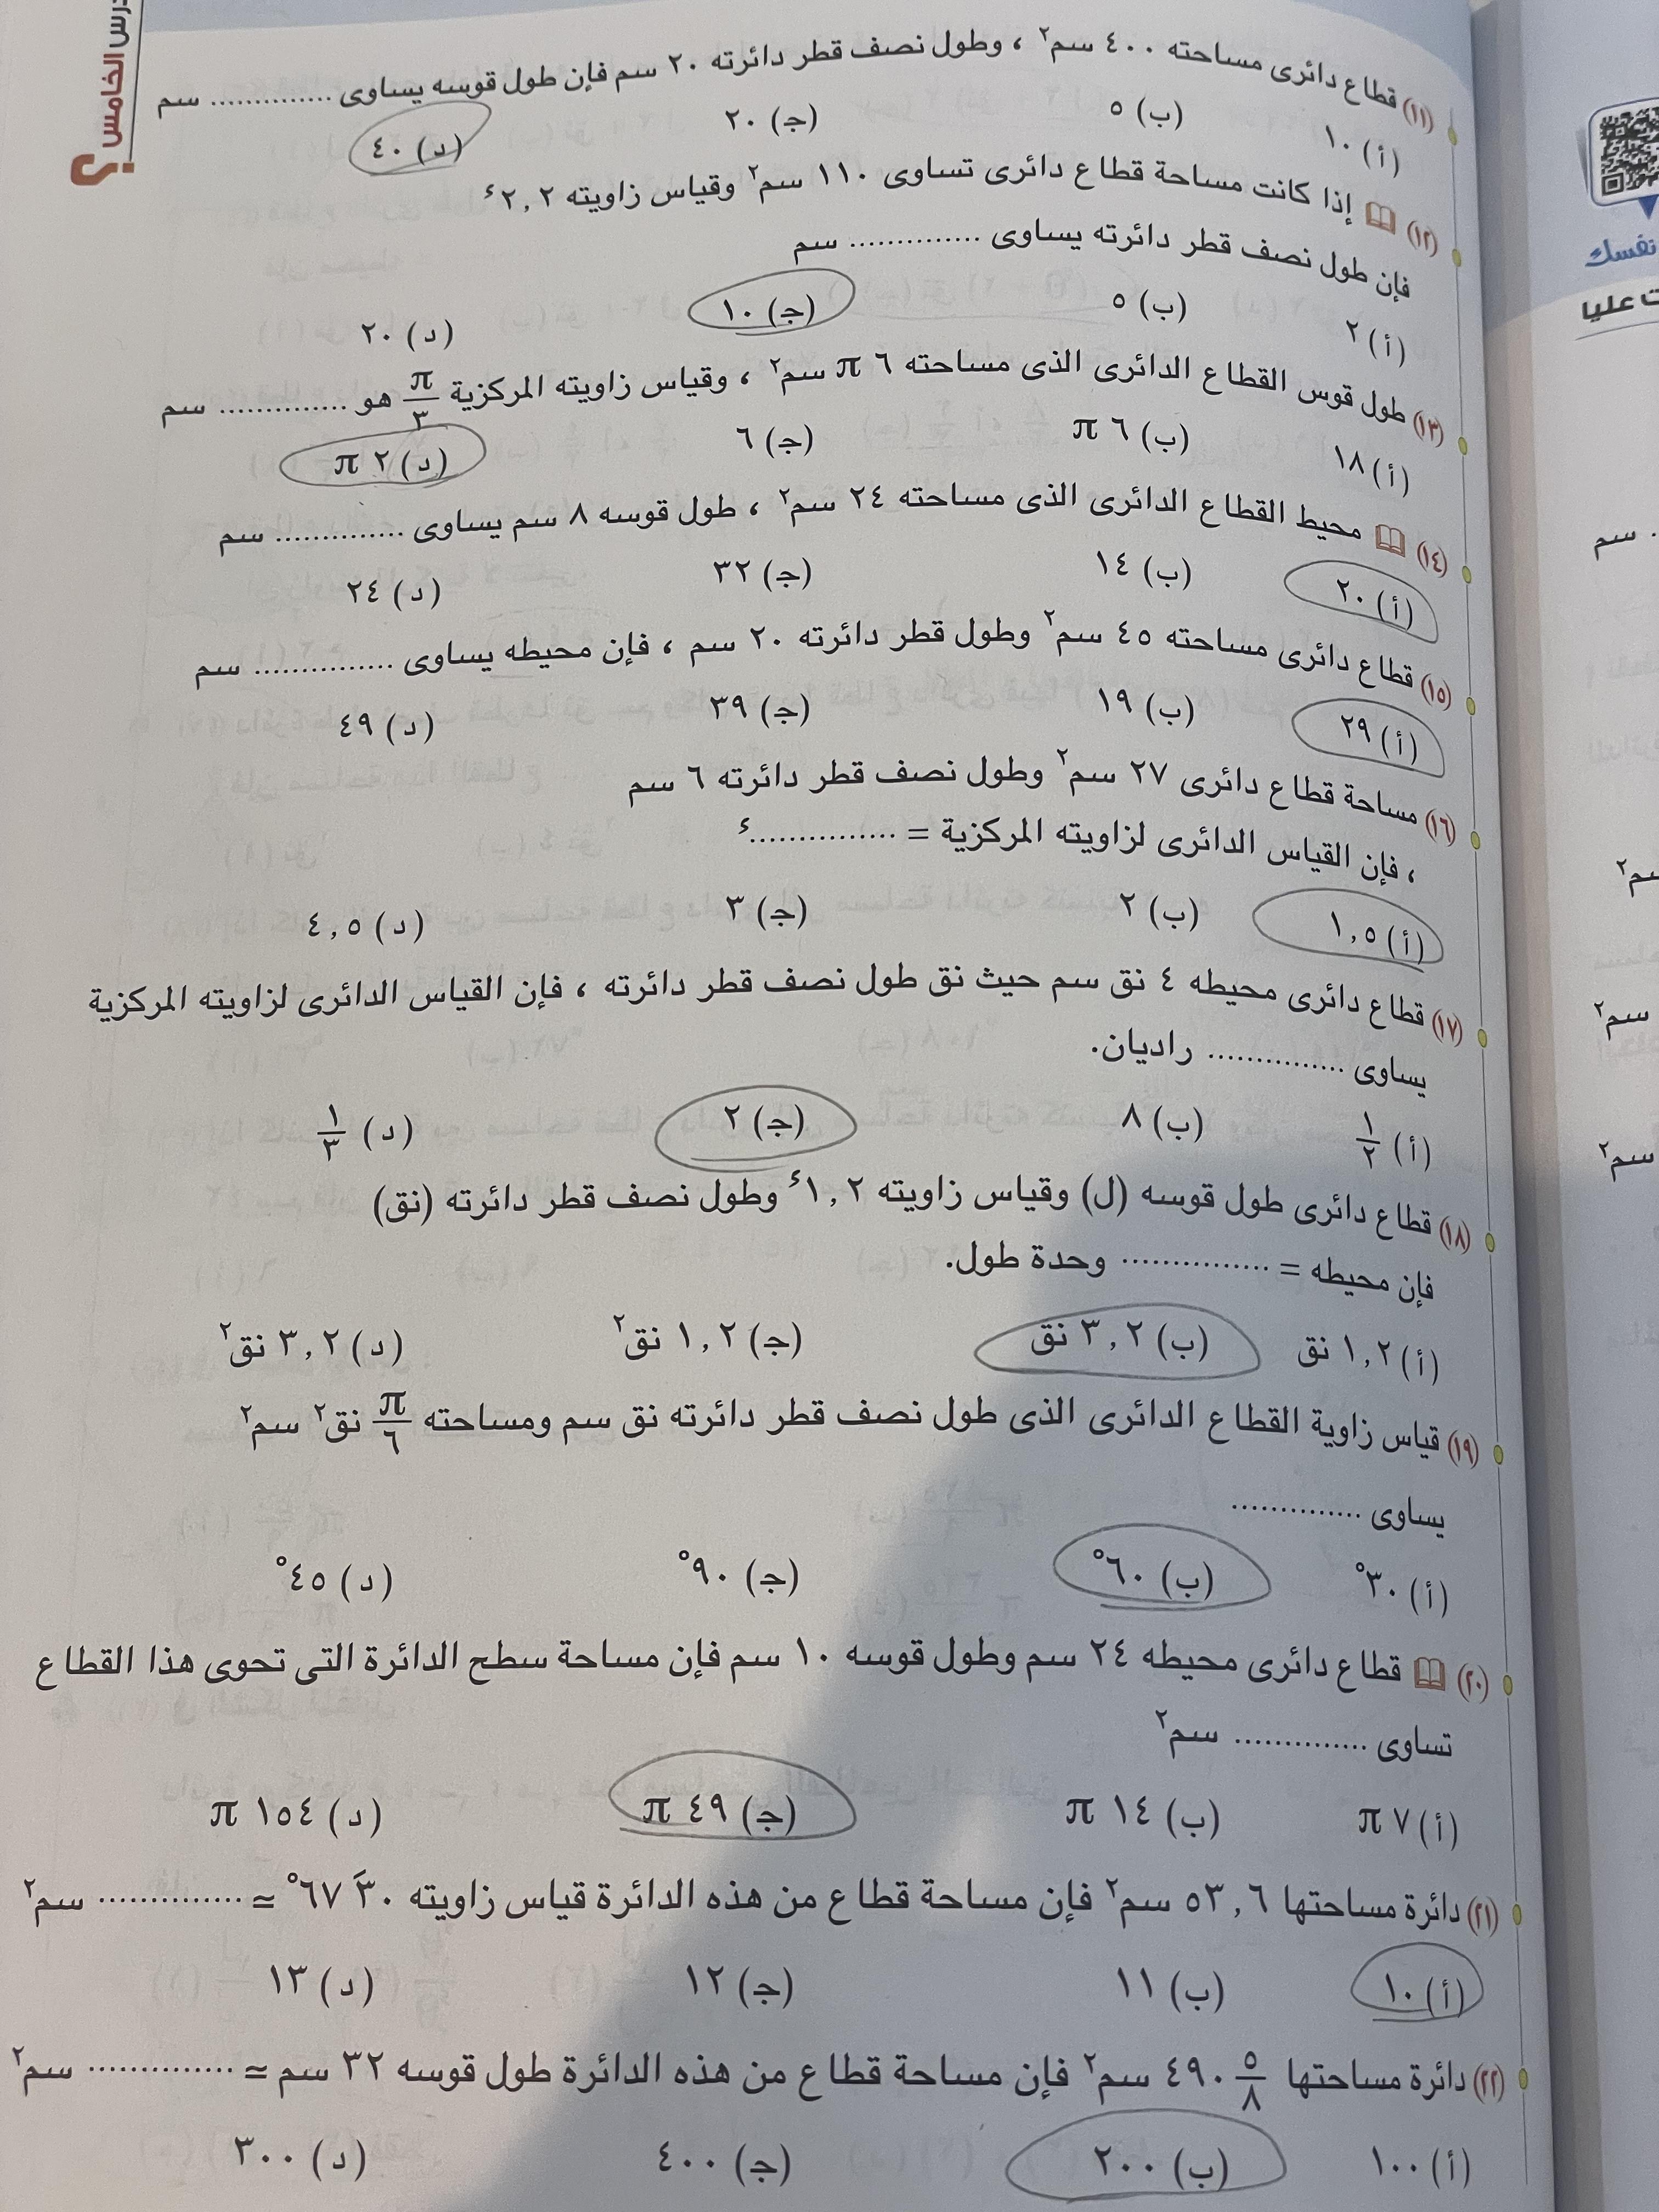 درس الخامس
؟
(١١) قطاع دائرى مساحته ٤٠٠ سم٢ ، وطول نصف قطر دائرته ٢٠ سم فإن طول قوسه يساوى .............. سم
(أ) ١٠ (ب) ٥ (جـ) ٢٠ (د) ٤٠
(١٢) إذا كانت مساحة قطاع دائرى تساوى ١١٠ سم٢ وقياس زاويته ٢,٢ء
فإن طول نصف قطر دائرته يساوى .............. سم
(أ) ٢ (ب) ٥ (جـ) ١٠ (د) ٢٠
(١٣) طول قوس القطاع الدائرى الذى مساحته ٦ π سم٢ ، وقياس زاويته المركزية π/٣ هو .............. سم
(أ) ١٨ (ب) ٦ π (جـ) ٦ (د) ٢ π
(١٤) محيط القطاع الدائرى الذى مساحته ٢٤ سم٢ ، طول قوسه ٨ سم يساوى .............. سم
(أ) ٢٠ (ب) ١٤ (جـ) ٣٢ (د) ٢٤
(١٥) قطاع دائرى مساحته ٤٥ سم٢ وطول قطر دائرته ٢٠ سم ، فإن محيطه يساوى .............. سم
(أ) ٢٩ (ب) ١٩ (جـ) ٣٩ (د) ٤٩
(١٦) مساحة قطاع دائرى ٢٧ سم٢ وطول نصف قطر دائرته ٦ سم
، فإن القياس الدائرى لزاويته المركزية = ..............ء
(أ) ١,٥ (ب) ٢ (جـ) ٣ (د) ٤,٥
(١٧) قطاع دائرى محيطه ٤ نق سم حيث نق طول نصف قطر دائرته ، فإن القياس الدائرى لزاويته المركزية
يساوى .............. راديان.
(أ) ١/٢ (ب) ٨ (جـ) ٢ (د) ١/٣
(١٨) قطاع دائرى طول قوسه (ل) وقياس زاويته ١,٢ء وطول نصف قطر دائرته (نق)
فإن محيطه = .............. وحدة طول.
(أ) ١,٢ نق (ب) ٣,٢ نق (جـ) ١,٢ نق٢ (د) ٣,٢ نق٢
(١٩) قياس زاوية القطاع الدائرى الذى طول نصف قطر دائرته نق سم ومساحته π/٦ نق٢ سم٢
يساوى ..............
(أ) ٣٠° (ب) ٦٠° (جـ) ٩٠° (د) ٤٥°
(٢٠) قطاع دائرى محيطه ٢٤ سم وطول قوسه ١٠ سم فإن مساحة سطح الدائرة التى تحوى هذا القطاع
تساوى .............. سم٢
(أ) ٧ π (ب) ١٤ π (جـ) ٤٩ π (د) ١٥٤ π
(٢١) دائرة مساحتها ٥٣,٦ سم٢ فإن مساحة قطاع من هذه الدائرة قياس زاويته ٣٠َ ٦٧° ≃ .............. سم٢
(أ) ١٠ (ب) ١١ (جـ) ١٢ (د) ١٣
(٢٢) دائرة مساحتها ٤٩٠ ٥/٨ سم٢ فإن مساحة قطاع من هذه الدائرة طول قوسه ٣٢ سم ≃ .............. سم٢
(أ) ١٠٠ (ب) ٢٠٠ (جـ) ٤٠٠ (د) ٣٠٠
نفسك
ت عليا
سم
سم٢
سم٢
سم٢